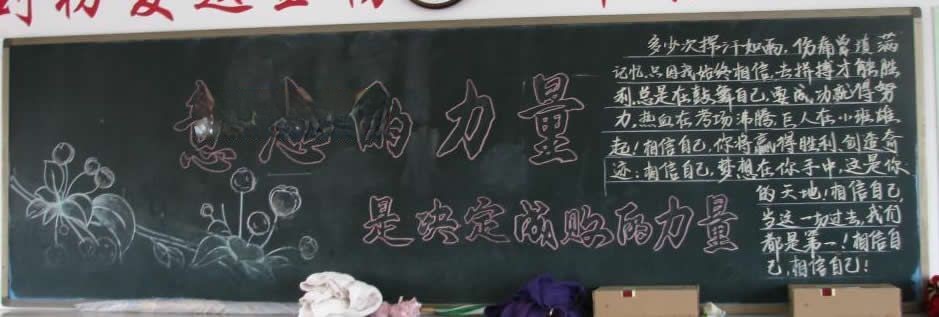 意志的力量
是决定成败的力量
多少次挥汗如雨,伤痛曾填满
记忆,只因我始终相信,去拼搏才能胜
利,总是在鼓舞自己,要成功就得努
力,热血在考场沸腾,巨人在小班雄
起!相信自己,你将赢得胜利,创造奇
迹;相信自己,梦想在你手中,这是你
的天地!相信自己,
当这一切过去,我们
都是第一!相信自
己,相信自己!